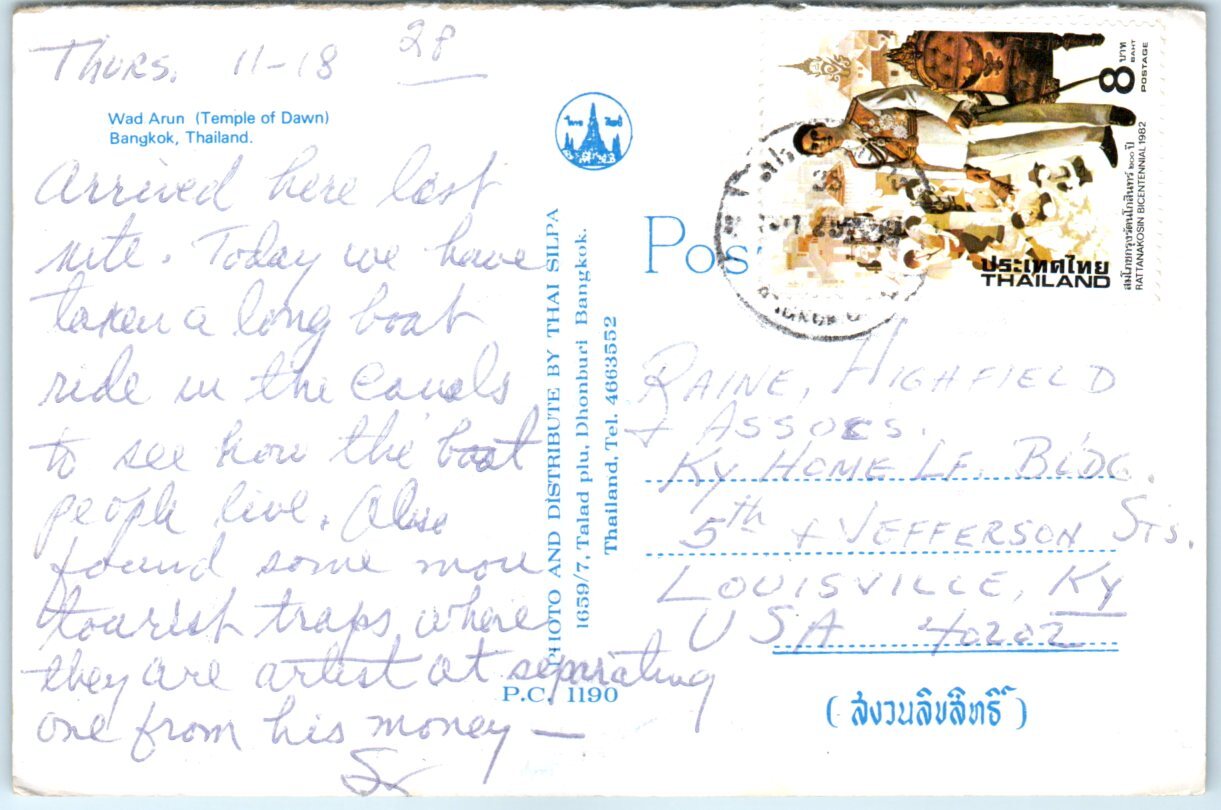 Thurs. 11-18 28
Wad Arun (Temple of Dawn)
Bangkok, Thailand.
Arrived here last
nite. Today we have
taken a long boat
ride in the canals
to see how the boat
people live. Also
found some more
tourist traps where
they are artist at separating
one from his money —
PHOTO AND DISTRIBUTE BY THAI SILPA
1659/7, Talad plu, Dhonburi Bangkok.
Thailand, Tel. 4663552
P.C. 1190
Post
8 บาท
BAHT
POSTAGE
สมโภชกรุงรัตนโกสินทร์ ๒๐๐ ปี
RATTANAKOSIN BICENTENNIAL 1982
ประเทศไทย
THAILAND
RAINE, HIGHFIELD
+ ASSOCS.
KY HOME LF. BLDG.
5th + JEFFERSON STS.
LOUISVILLE, KY
USA 40202
(สงวนลิขสิทธิ์)